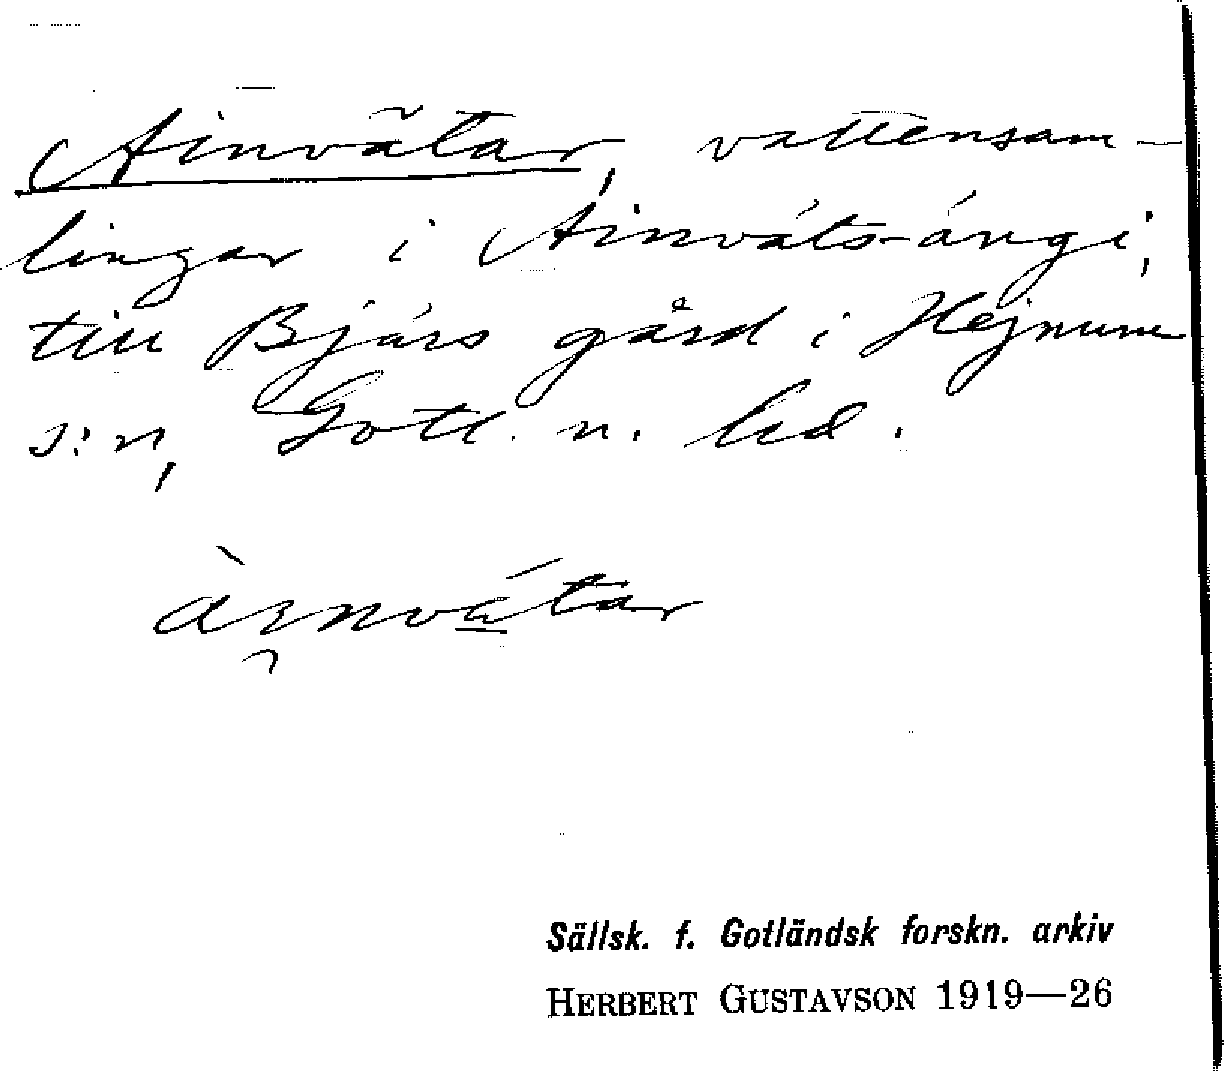 Ainvätar, vattensam-
lingar i Ainväts-ängi,
till Bjärs gård i Hejnum
s:n, Gotl. n. hd.
àɪnvátar
Sällsk. f. Gotländsk forskn. arkiv
HERBERT GUSTAVSON 1919—26